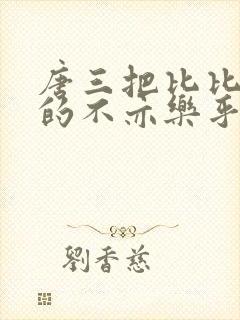 唐三把比比
的不亦樂乎
劉香慈